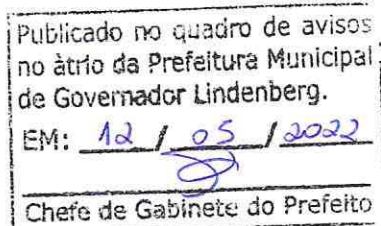 Publicado no quadro de avisos
no àtrio da Prefeitura Municipal
de Governador Lindenberg.
EM: 12 / 05 / 2022
Chefe de Gabinete do Prefeito